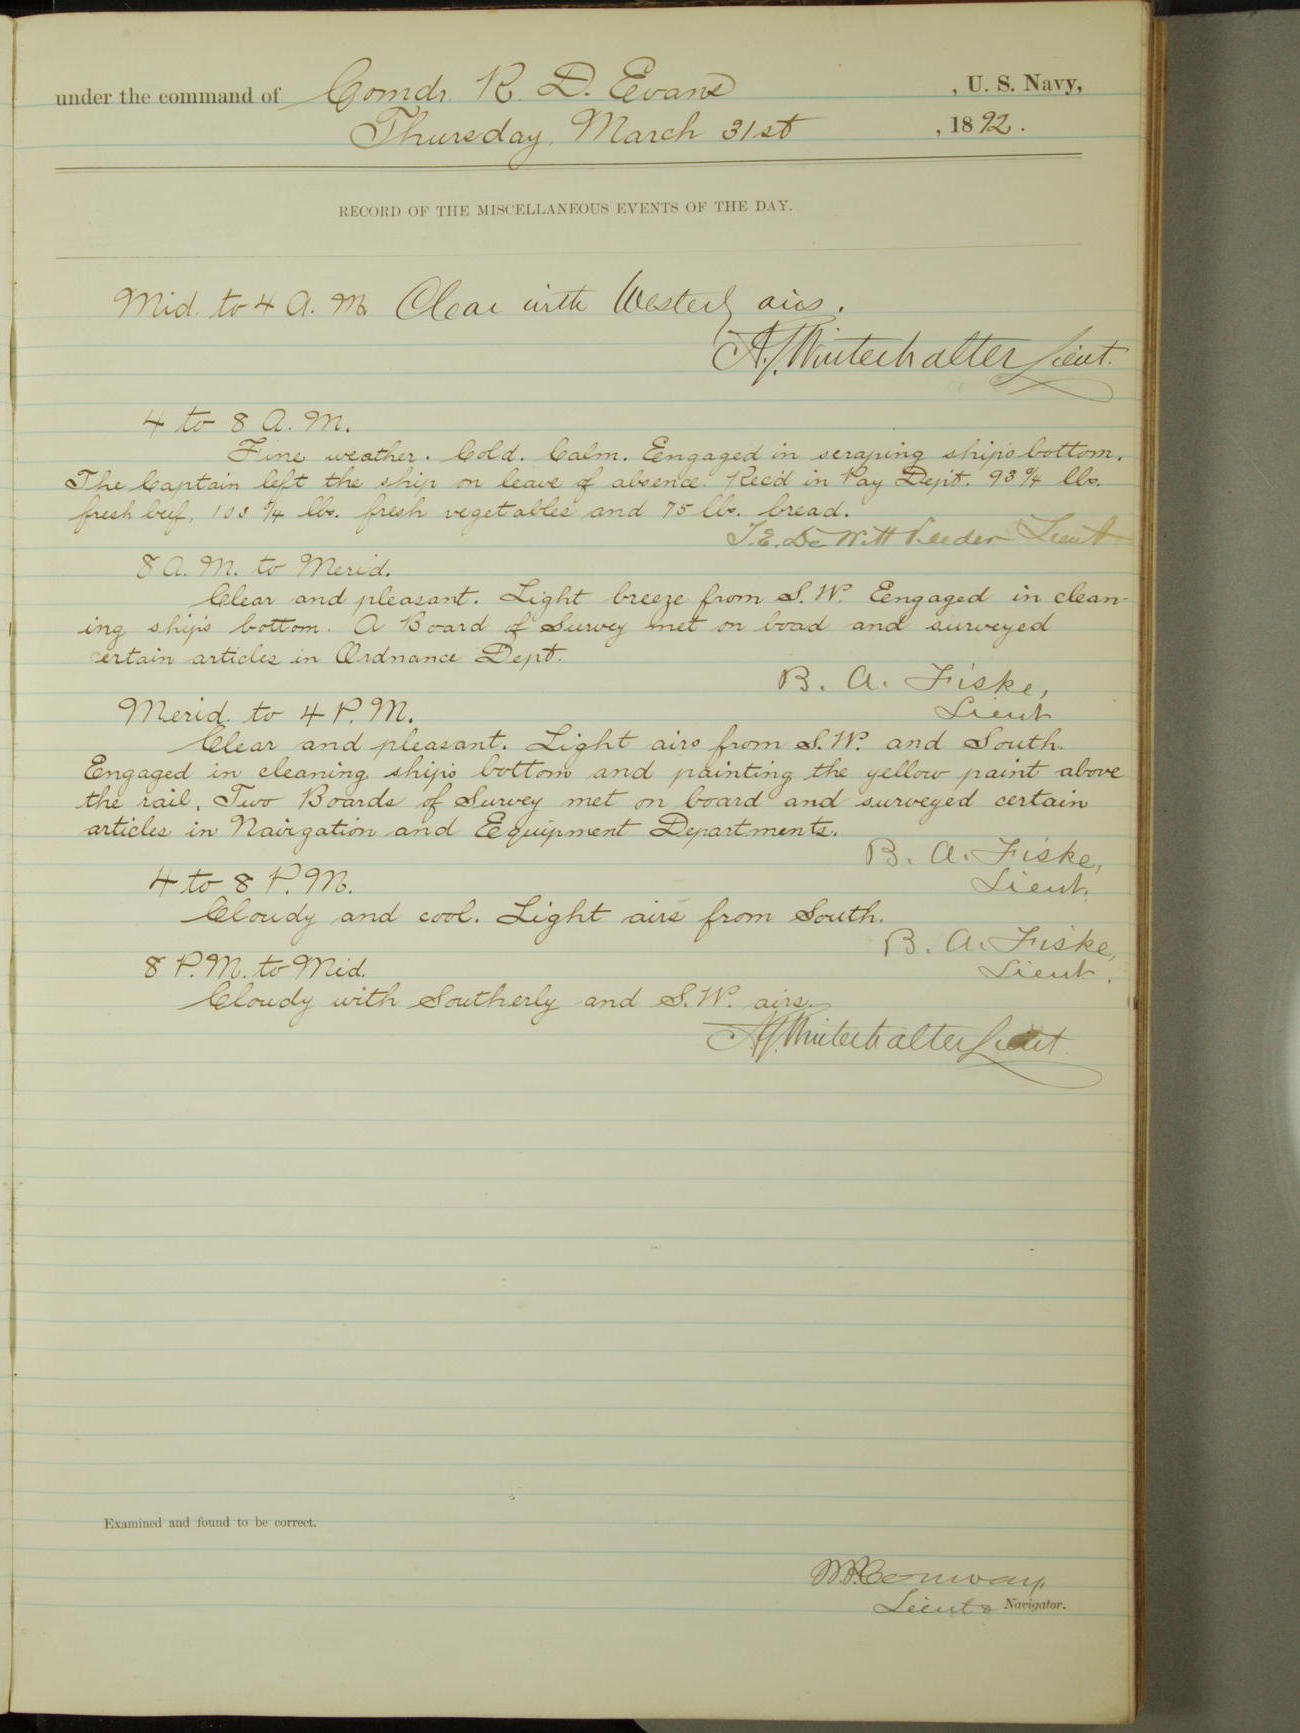 under the command of Comdr. R. D. Evans , U. S. Navy,
Thursday, March 31st , 1892.
RECORD OF THE MISCELLANEOUS EVENTS OF THE DAY.
Mid. to 4 A. M. Clear with Westerly airs.
A. G. Winterhalter Lieut.
4 to 8 A. M.
Fine weather. Cold. Calm. Engaged in scraping ship's bottom.
The Captain left the ship on leave of absence. Rec'd in Pay Dep't. 93 lbs.
fresh beef, lbs. fresh vegetables and 75 lbs. bread.
T. E. De Witt Veeder Lieut
8 A. M. to Merid.
Clear and pleasant. Light breeze from S. W. Engaged in clean-
ing ship's bottom. A Board of Survey met on boad and surveyed
certain articles in Ordnance Dept.
B. A. Fiske,
Lieut
Merid. to 4 P. M.
Clear and pleasant. Light airs from S. W. and South.
Engaged in cleaning ship's bottom and painting the yellow paint above
the rail. Two Boards of Survey met on board and surveyed certain
articles in Navigation and Equipment Departments.
B. A. Fiske,
Lieut.
4 to 8 P. M.
Cloudy and cool. Light airs from South.
B. A. Fiske,
Lieut.
8 P. M. to Mid.
Cloudy with Southerly and S. W. airs.
A. G. Winterhalter Lieut
Examined and found to be correct.
W. P. Conway,
Lieut & Navigator.